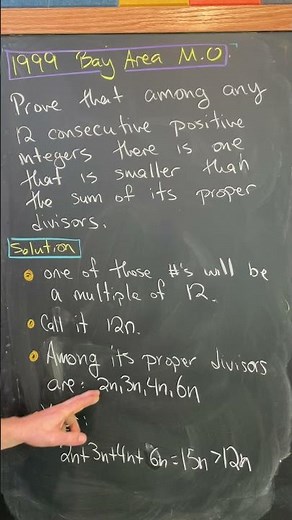 1999 Bay Area M.O.
Prove that among any
12 consecutive positive
integers there is one
that is smaller than
the sum of its proper
divisors.
Solution
• one of those #'s will be
a multiple of 12.
• Call it 12n.
• Among its proper divisors
are: 2n, 3n, 4n, 6n
2n+3n+4n+6n=15n>12n